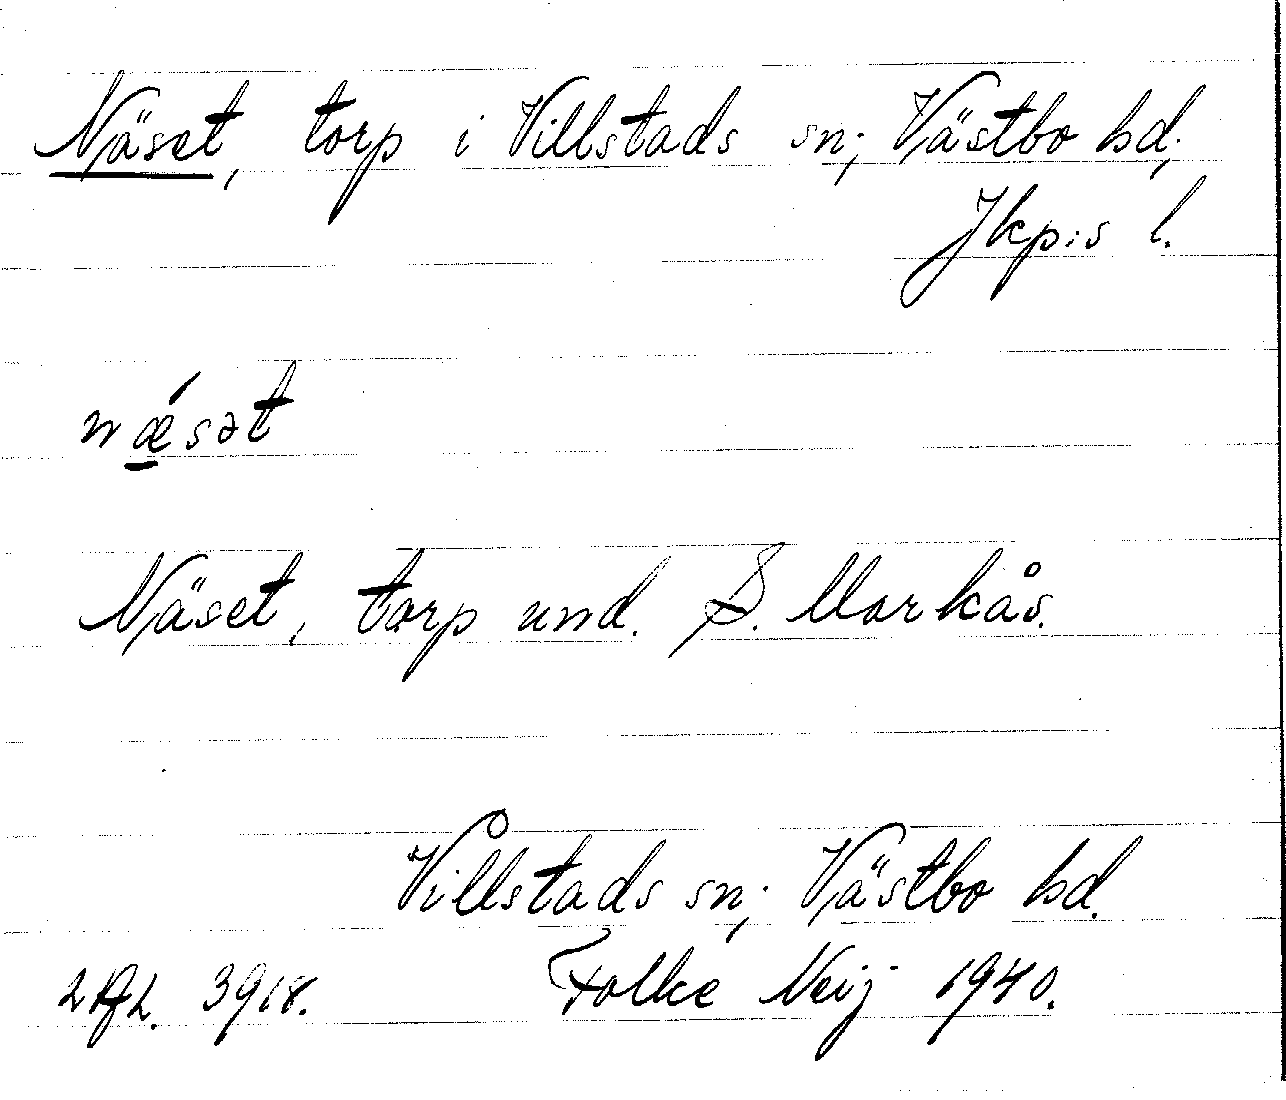 Näset, torp i Villstads sn; Västbo hd;
Jkp:s l.
nǽ̱sət
Näset, torp und. S. Morkås.
Villstads sn; Västbo hd.
3918. Folke Neij 1940.